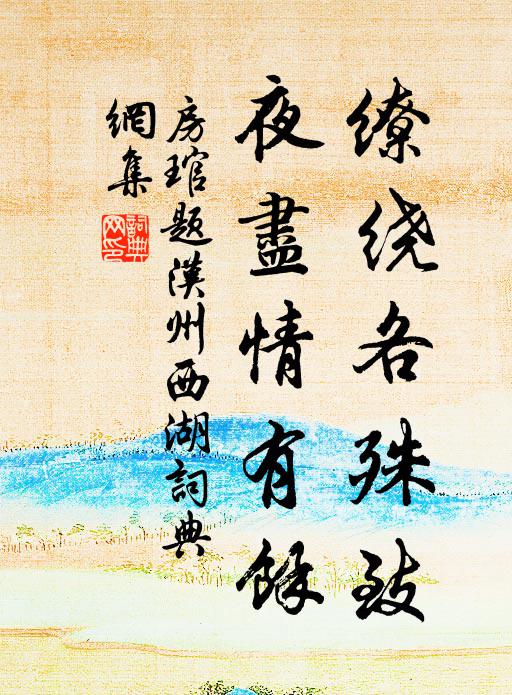 缭绕各殊致
夜盡情有餘
房琯題漢州西湖詞典
網集
詞典
网印